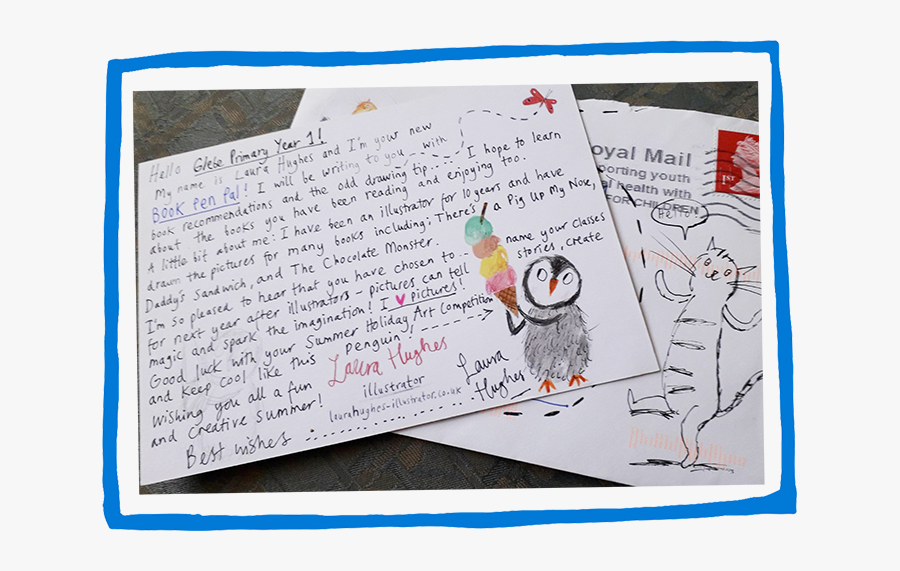 Hello Glebe Primary Year 1!
My name is Laura Hughes and I'm your new
Book Pen Pal! I will be writing to you.. with
book recommendations and the odd drawing tip.... I hope to learn
about the books you have been reading and enjoying too.
A little bit about me: I have been an illustrator for 10 years and have
drawn the pictures for many books including; There's a Pig Up My Nose,
Daddy's Sandwich, and The Chocolate Monster.
I'm so pleased to hear that you have chosen to.. name your classes
for next year after illustrators - pictures can tell stories, create
magic and spark the imagination! I ♥ pictures!
Good luck with your Summer Holiday Art Competition
and keep cool like this penguin!
Wishing you all a fun
and creative summer!
Best wishes
Laura Hughes
illustrator
laurahughes-illustrator.co.uk
Laura
Hughes
oyal Mail
porting youth
al health with
FOR CHILDREN
1ST
Hello!